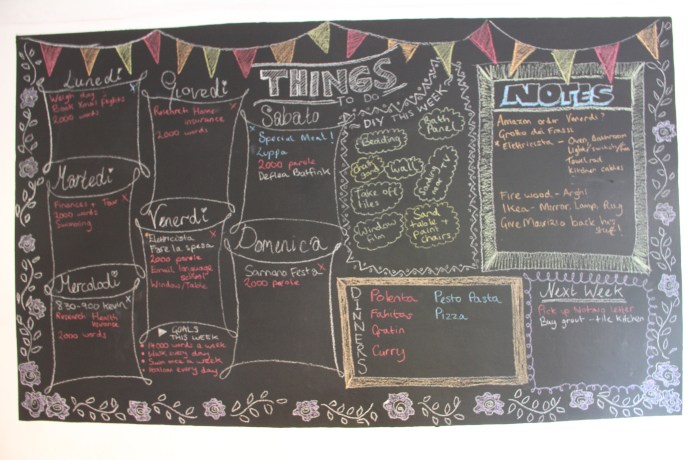 Lunedi
Weigh day
Book Xmas flights
2000 words
Martedi
Finances + Tour
2000 words
Swimming
Mercoladi
8:30-9:00
Research Health
insurance
2000 words
Giovedi
Research Home
insurance
2000 words
Venerdi
Elettricista
Fare la spesa
2000 parole
Email language
school
Window/Table
GOALS
THIS WEEK
words a week
Walk every day
Swim once a week
every day
THINGS
TO DO
Sabato
Special Meal!
Zuppa
2000 parole
Deflea Botfink
Domenica
Sarnano Festa
2000 parole
DIY THIS WEEK
Bedding
Bath
Panel
Walls
Take off
tiles
Window
film
Sand
table &
paint
chairs
DINNERS
Polenta
Fahitas
Gratin
Curry
Pesto Pasta
Pizza
NOTES
Amazon order Venerdi?
Grotto dei Frassi
Elettricista - Oven, Bathroom
Light/switch/fan
Towel rad
Kitchen cables
Fire wood - Arghl
Ikea - Mirror, Lamp, Rug
Give Maurizio back his
stuff!
Next Week
Pick up Notaro letter
Buy grout - tile kitchen